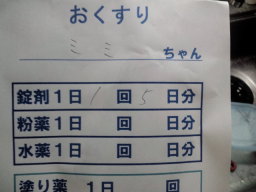 おくすり
ミミ ちゃん
錠剤1日 1 回 5 日分
粉薬1日 回 日分
水薬1日 回 日分
塗り薬 1日 回